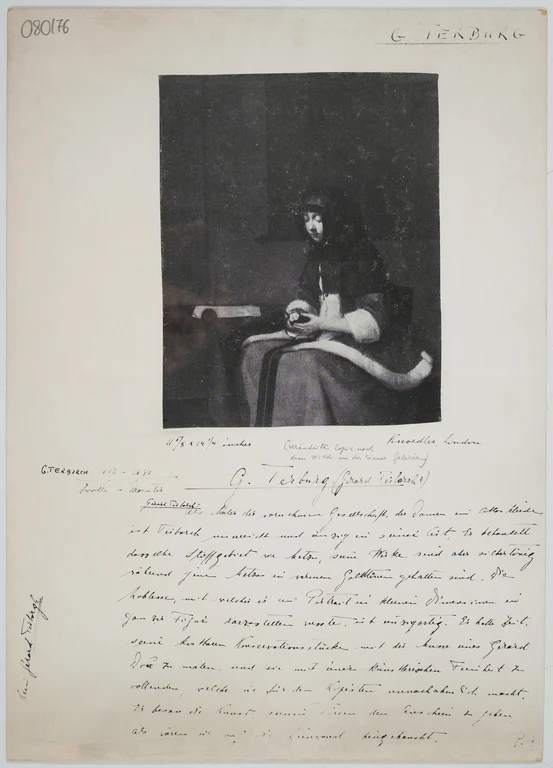 080/76
G TERBURG
11 5/8 x 14 1/4 inches
Knoedler, London
Veränderte Copie nach
dem Bilde in der Galerie
G. TERBORCH 1617 - 1681
Zwolle - Deventer
G. Terburg (Gerard Terborch)
Gerard Terborch
als Maler der vornehmen Gesellschaft, der Damen im Atlas Kleide
ist Terborch unerreicht und einzig in seiner Art. Er behandelt
dasselbe Stoffgebiet wie Metsu, seine Werke sind aber silbertönig
während jene Metsus in warmen Goldtönen gehalten sind. Die
Noblesse, mit welcher er ein Portrait in kleinen Dimensionen in
ganzer Figur darzustellen wusste, ist einzigartig. Er hatte Zeit,
seine kostbaren Konversationsstücke mit der Musse eines Gerard
Dou zu malen, und sie mit einer künstlerischen Freiheit zu
vollenden, welche sie für den Kopisten unnachahmlich macht.
Er besass die Kunst seinen den Anschein zu geben
als wären sie auf die Leinwand hingehaucht.
Gerard Terborch